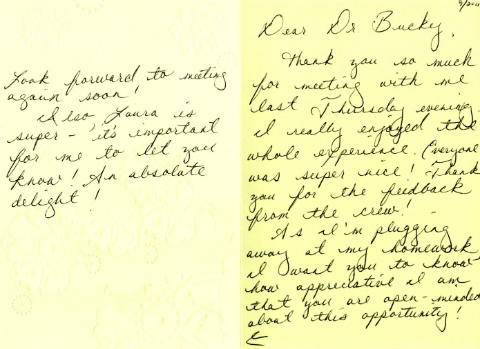 Dear Dr Bucky,
Thank you so much
for meeting with me
last Thursday evening.
I really enjoyed the
whole experience! Everyone
was super nice! Thank
you for the feedback
from the crew!
As I'm plugging
away at my homework
I want you to know
how appreciative I am
that you are open-minded
about this opportunity!
Look forward to meeting
again soon!
Also Laura is
super - it's important
for me to let you
know! An absolute
delight!